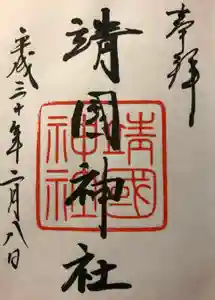 奉拝
靖國神社
靖國神社
平成三十年二月八日